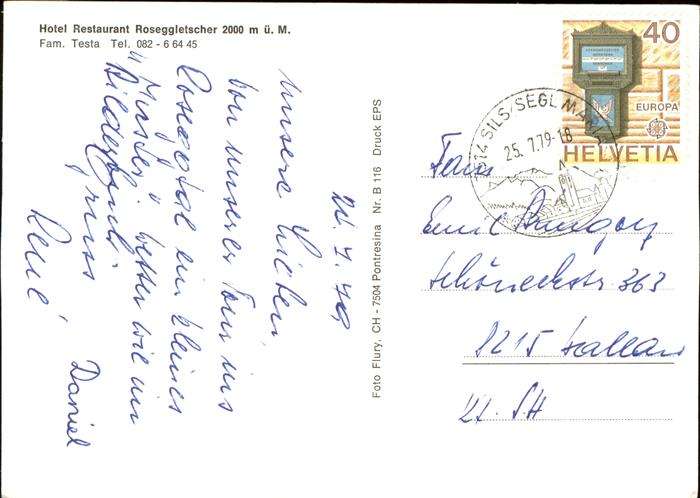 Hotel Restaurant Roseggletscher 2000 m ü. M.
Fam. Testa Tel. 082 - 6 64 45
24.7.79
Unsere Lieben,
von unserer Tour ins
Roseggtal ein kleines
"Müsterli" besser wie im
Bilderbuch.
Gruss
René Daniel
Foto Flury, CH - 7504 Pontresina Nr. B 116 Druck EPS
40
EUROPA
HELVETIA
7514 SILS/SEGL MARIA
25. 7.79-18
Fam.
Emil
Schöneckstr. 363
8215 Hallau
Kt. SH